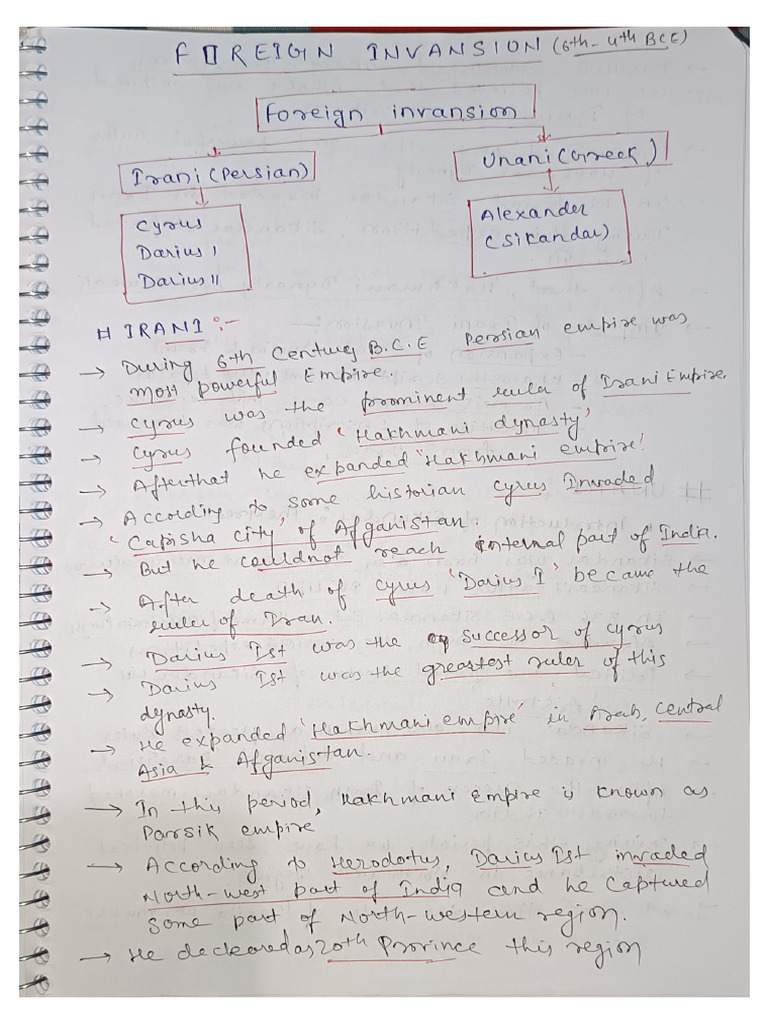 FOREIGN INVANSION (6th - 4th BCE)
Foreign invansion
Irani (Persian)
Unani (Greek)
Cyrus
Darius I
Darius II
Alexander
(Sikandar)
# IRANI :-
→ During 6th Century B.C.E Persian empire was
most powerful Empire.
→ Cyrus was the prominent rula of Irani Empire.
→ Cyrus founded 'Hakhmani dynasty'
→ Afterthat he expanded 'Hakhmani empire'
→ According to some historian cyrus Invaded
'Capisha city' of Afganistan.
→ But he couldnot reach internal part of India.
→ After death of cyrus 'Darius I' became the
ruler of Iran.
→ Darius Ist was the successor of cyrus
→ Darius Ist was the greatest ruler of this
dynasty.
→ He expanded 'Hakhmani empire' in Arab, Central
Asia & Afganistan.
→ In this period, Hakhmani Empire is known as
Parsik empire
→ According to Herodotus, Darius Ist invaded
North-west part of India and he captured
some part of North-western region.
→ He deckaredas 20th Province this region